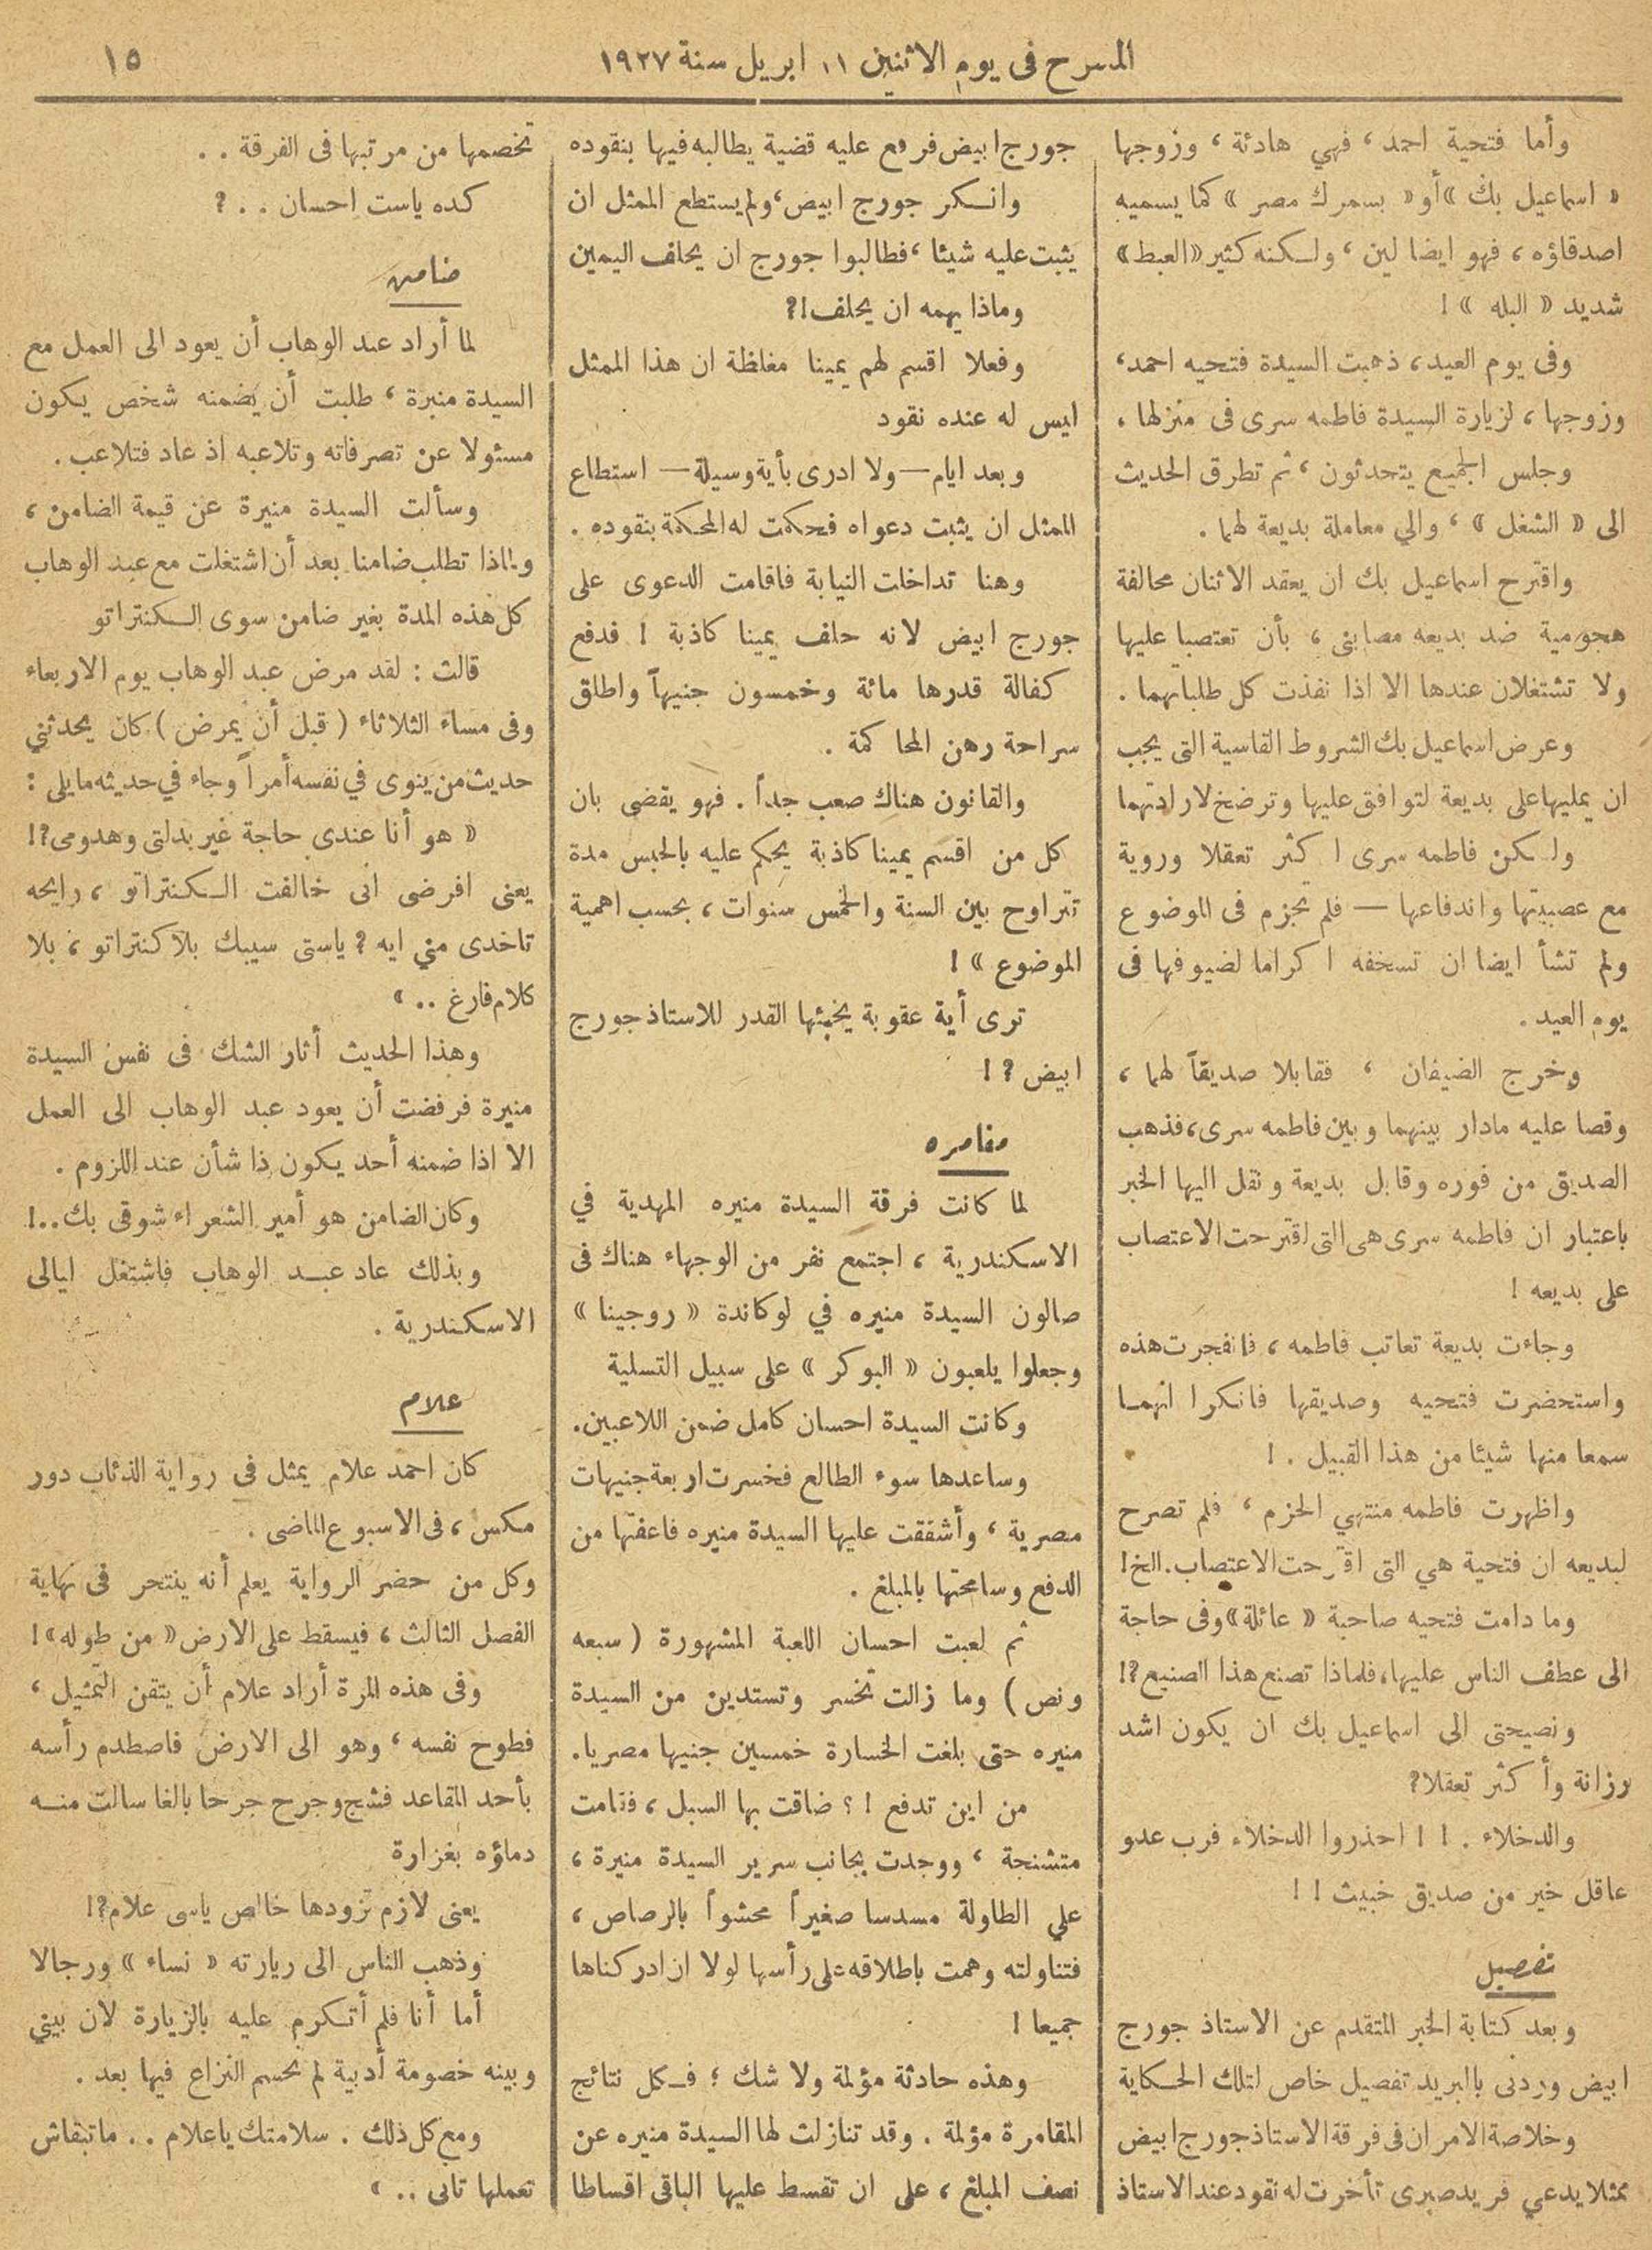 المسرح فى يوم الاثنين ١١ ابريل سنة ١٩٢٧
١٥
وأما فتحية احمد ، فهي هادئة ، وزوجها
« اسماعيل بك » أو « بسمرك مصر » كما يسميه
اصدقاؤه ، فهو ايضا لين ، ولكنه كثير « العبط »
شديد « البله » !
وفى يوم العيد ، ذهبت السيدة فتحيه احمد ،
وزوجها ، لزيارة السيدة فاطمه سرى فى منزلها ،
وجلس الجميع يتحدثون ، ثم تطرق الحديث
الى « الشغل » ، والي معاملة بديعة لهما .
واقترح اسماعيل بك ان يعقد الاثنان محالفة
هجومية ضد بديعه مصابنى ، بأن تعتصبا عليها
ولا تشتغلان عندها الا اذا نفذت كل طلباتهما .
وعرض اسماعيل بك الشروط القاسية التى يجب
ان يمليها على بديعة لتوافق عليها وترضخ لارادتهما
ولكن فاطمه سرى اكثر تعقلا وروية
مع عصبيتها واندفاعها — فلم تجزم فى الموضوع
ولم تشأ ايضا ان تسخفه اكراما لضيوفها فى
يوم العيد .
وخرج الضيفان ، فقابلا صديقاً لهما ،
وقصا عليه مادار بينهما وبين فاطمه سرى ، فذهب
الصديق من فوره وقابل بديعة ونقل اليها الخبر
باعتبار ان فاطمه سرى هى التى اقترحت الاعتصاب
على بديعه !
وجاءت بديعة تعاتب فاطمه ، فانفجرت هذه
واستحضرت فتحيه وصديقها فانكرا انهما
سمعا منها شيئا من هذا القبيل . !
واظهرت فاطمه منتهي الحزم ، فلم تصرح
لبديعه ان فتحية هي التى اقترحت الاعتصاب . الخ !
وما دامت فتحيه صاحبة « عائلة » وفى حاجة
الى عطف الناس عليها ، فلماذا تصنع هذا الصنيع ?!
ونصيحتى الى اسماعيل بك ان يكون اشد
رزانة وأكثر تعقلا?
والدخلاء . ! ! احذروا الدخلاء فرب عدو
عاقل خير من صديق خبيث ! !
تفصيل
وبعد كتابة الخبر المتقدم عن الاستاذ جورج
ابيض وردنى بالبريد تفصيل خاص لتلك الحكاية
وخلاصة الامر ان فى فرقة الاستاذ جورج ابيض
ممثلا يدعي فريد صبرى تأخرت له نقود عند الاستاذ
جورج ابيض فرفع عليه قضية يطالبه فيها بنقوده
وانكر جورج ابيض ، ولم يستطع الممثل ان
يثبت عليه شيئا ، فطالبوا جورج ان يحلف اليمين
وماذا يهمه ان يحلف !?
وفعلا اقسم لهم يمينا مغلظة ان هذا الممثل
ليس له عنده نقود
وبعد ايام — ولا ادرى بأية وسيلة — استطاع
الممثل ان يثبت دعواه فحكمت له المحكمة بنقوده .
وهنا تداخلت النيابة فاقامت الدعوى على
جورج ابيض لانه حلف يمينا كاذبة ! فدفع
كفالة قدرها مائة وخمسون جنيهاً واطلق
سراحة رهن المحاكمة .
والقانون هناك صعب جداً . فهو يقضى بان
كل من اقسم يمينا كاذبة يحكم عليه بالحبس مدة
تتراوح بين السنة والخمس سنوات ، بحسب اهمية
الموضوع » !
ترى أية عقوبة يخبئها القدر للاستاذ جورج
ابيض ? !
مقامره
لما كانت فرقة السيدة منيره المهدية في
الاسكندرية ، اجتمع نفر من الوجهاء هناك فى
صالون السيدة منيره في لوكاندة « روجينا »
وجعلوا يلعبون « البوكر » على سبيل التسلية
وكانت السيدة احسان كامل ضمن اللاعبين .
وساعدها سوء الطالع فخسرت اربعة جنيهات
مصرية ، وأشفقت عليها السيدة منيره فاعفتها من
الدفع وسامحتها بالمبلغ .
ثم لعبت احسان اللعبة المشهورة ( سبعه
ونص ) وما زالت تخسر وتستدين من السيدة
منيره حتى بلغت الخسارة خمسين جنيها مصريا .
من اين تدفع ! ؟ ضاقت بها السبل ، فقامت
متشنجة ، ووجدت بجانب سرير السيدة منيرة ،
علي الطاولة مسدسا صغيراً محشواً بالرصاص ،
فتناولته وهمت باطلاقه على رأسها لولا ان ادركناها
جميعا !
وهذه حادثة مؤلمة ولا شك ؛ فكل نتائج
المقامرة مؤلمة . وقد تنازلت لها السيدة منيره عن
نصف المبلغ ، على ان تقسط عليها الباقى اقساطا
تخصمها من مرتبها فى الفرقة . .
كده ياست احسان . . ?
ضامن
لما أراد عبد الوهاب أن يعود الى العمل مع
السيدة منيرة ، طلبت أن يضمنه شخص يكون
مسئولا عن تصرفاته وتلاعبه اذ عاد فتلاعب .
وسألت السيدة منيرة عن قيمة الضامن ،
ولماذا تطلب ضامنا بعد أن اشتغلت مع عبد الوهاب
كل هذه المدة بغير ضامن سوى الكنتراتو
قالت : لقد مرض عبد الوهاب يوم الاربعاء
وفى مساء الثلاثاء ( قبل أن يمرض ) كان يحدثني
حديث من ينوى في نفسه أمراً وجاء في حديثه مايلى :
« هو أنا عندي حاجة غير بدلتى وهدومى ?!
يعنى افرضى انى خالفت الكنتراتو ، رايحه
تاخدى مني ايه ? ياستى سيبك بلا كنتراتو ، بلا
كلام فارغ .. »
وهذا الحديث أثار الشك فى نفس السيدة
منيرة فرفضت أن يعود عبد الوهاب الى العمل
الا اذا ضمنه أحد يكون ذا شأن عند اللزوم .
وكان الضامن هو أمير الشعراء شوقى بك ..!
وبذلك عاد عبد الوهاب فاشتغل ليالى
الاسكندرية .
علام
كان احمد علام يمثل فى رواية الذئاب دور
مكس ، فى الاسبوع الماضى .
وكل من حضر الرواية يعلم أنه ينتحر فى نهاية
الفصل الثالث ، فيسقط على الارض « من طوله » !
وفى هذه المرة أراد علام أن يتقن التمثيل ،
فطوح نفسه ، وهو الى الارض فاصطدم رأسه
بأحد المقاعد فشج وجرح جرحا بالغا سالت منه
دماؤه بغزارة
يعنى لازم تزودها خالص ياسى علام ?!
وذهب الناس الى زيارته « نساء » ورجالا
أما أنا فلم أتكرم عليه بالزيارة لان بيني
وبينه خصومة أدبية لم يحسم النزاع فيها بعد .
ومع كل ذلك . سلامتك ياعلام . . ماتبقاش
تعملها تانى .. »